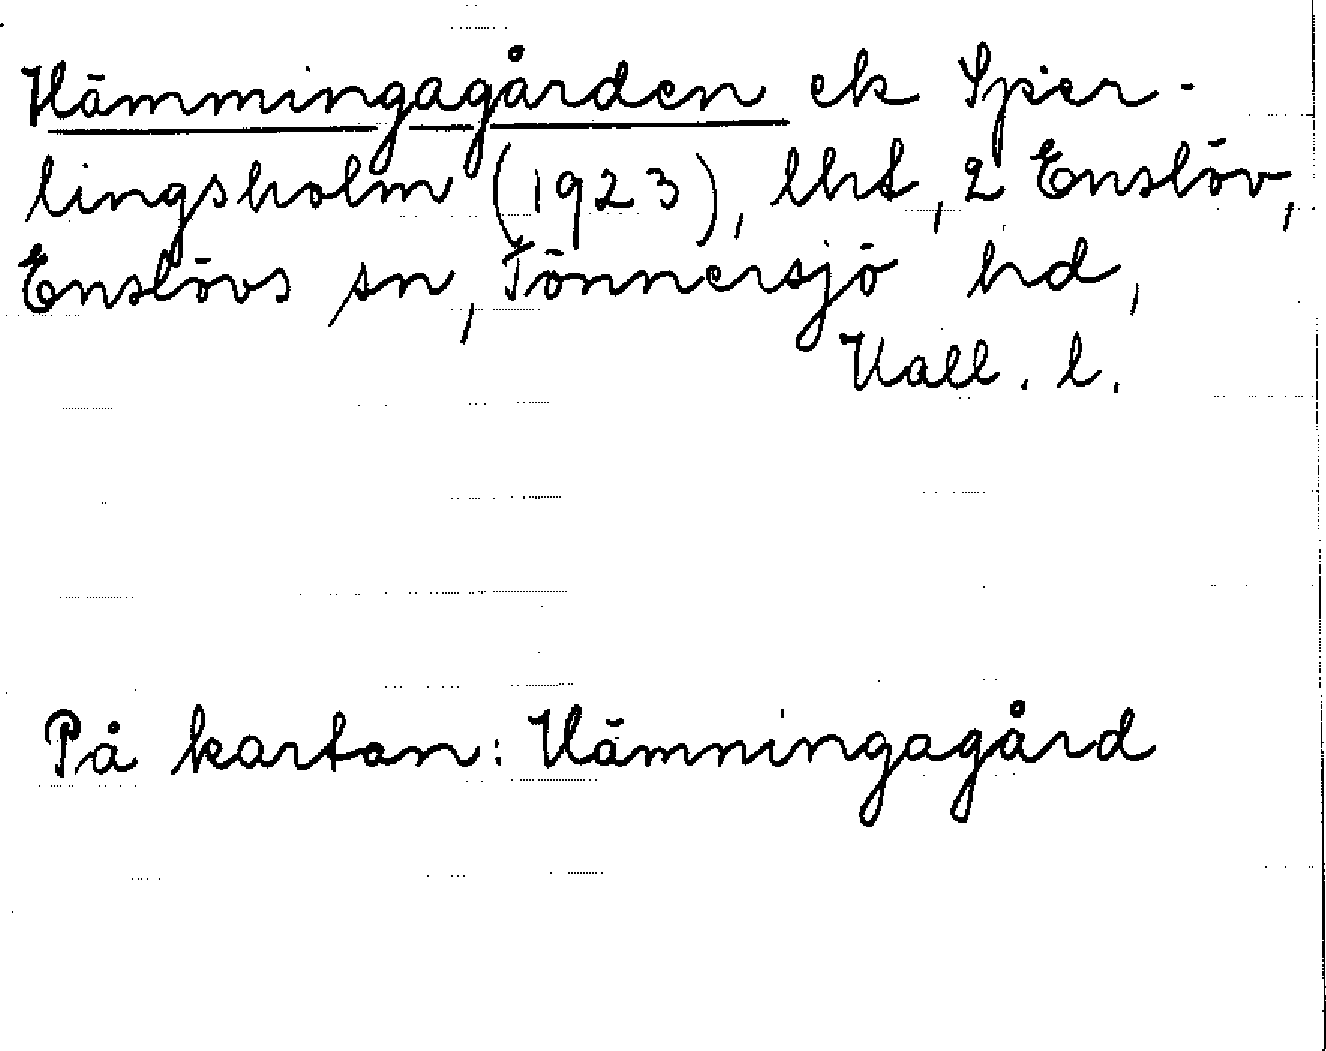 Hämmingagården ek Sper-
lingsholm (1923), lht, 2 Enslöv,
Enslövs sn, Tönnersjö hd,
Hall. l.
På kartan: Hämningagård